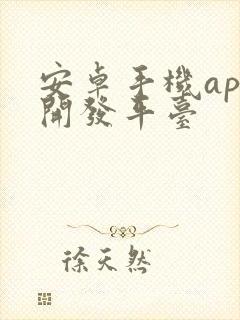 安卓手機ap
開發平臺
徐天然